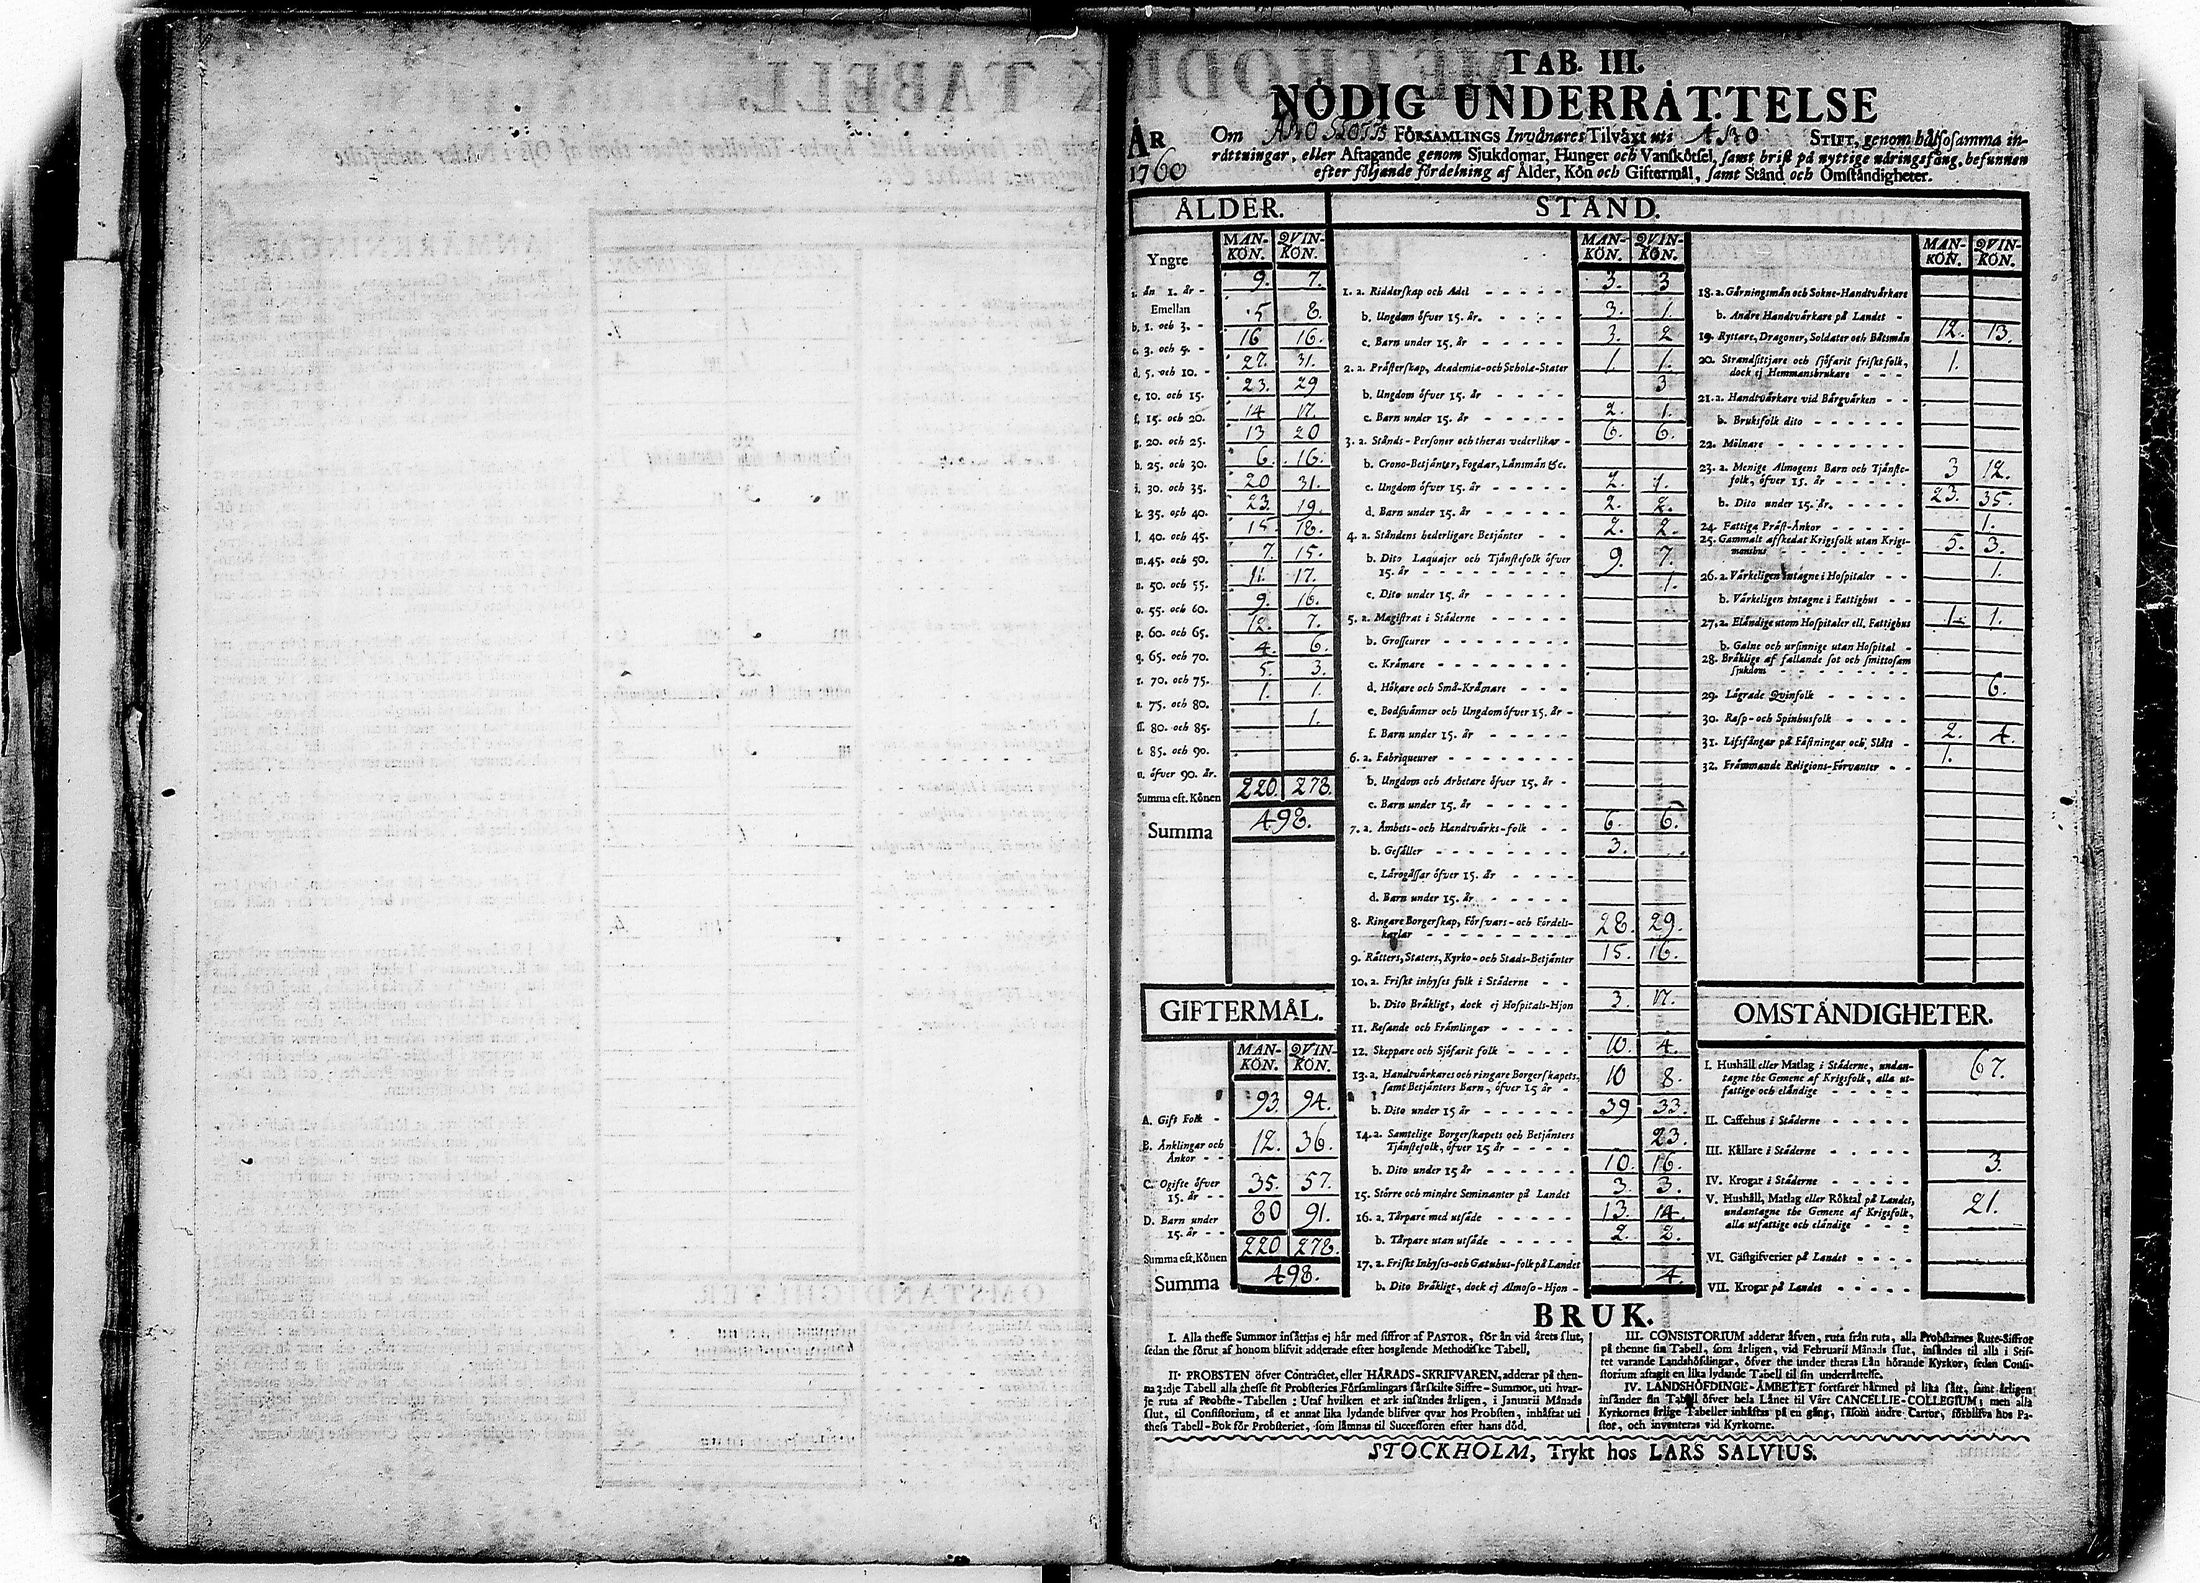 TAB. III.
NÖDIG UNDERRÄTTELSE
ÅR 1760
Om ÅBO SLOTTS FÖRSAMLINGS Invånares Tilväxt uti ÅBO STIFT, genom hälsosamma in-
rättningar, eller Aftagande genom Sjukdomar, Hunger och Vanskötsel, samt brist på nyttige näringsfång, befunnen
efter följande fördelning af Ålder, Kön och Giftermål, samt Stånd och Omständigheter.
ÅLDER.
MAN-KÖN. QVIN-KÖN.
Yngre
än 1. år - 9. 7.
Emellan
b. 1. och 3. - 5 8.
c. 3. och 5. - 16 16.
d. 5. och 10. - 27. 31.
e. 10. och 15. 23. 29
f. 15. och 20. 14 17.
g. 20. och 25. 13 20
h. 25. och 30. 6. 16.
i. 30. och 35. 20 31.
k. 35. och 40. 23. 19.
l. 40. och 45. 15. 18.
m. 45. och 50. 7. 15.
n. 50. och 55. 11. 17.
o. 55. och 60. 9. 16.
p. 60. och 65. 12. 7.
q. 65. och 70. 4. 6.
r. 70. och 75. 5. 3.
s. 75. och 80. 1. 1.
ss. 80. och 85.
t. 85. och 90. 1.
u. öfver 90. år.
Summa eft. Könen 220. 278.
Summa 498.
GIFTERMÅL.
MAN-KÖN. QVIN-KÖN.
A. Gift Folk - 93. 94.
B. Änklingar och
Änkor - - 12. 36.
C. Ogifte öfver
15. år - - 35. 57.
D. Barn under
15. år - - 80 91.
Summa eft. Könen 220 278.
Summa 498.
STÅND.
MAN-KÖN. QVIN-KÖN.
1. a. Ridderskap och Adel 3. 3
b. Ungdom öfver 15. år. 3. 1.
c. Barn under 15. år 3. 2
2. a. Prästerskap, Academiæ- och Scholæ-Stater 1. 1.
b. Ungdom öfver 15. år 3
c. Barn under 15. år 2. 1.
3. a. Stånds-Personer och theras vederlikar - 6. 6.
b. Crono-Betjänter, Fogdar, Länsmän &c.
c. Ungdom öfver 15. år 2. 1.
d. Barn under 15. år 2. 2.
4. a. Ståndens hederligare Betjänter 2. 2.
b. Dito Laquajer och Tjänstefolk öfver
15. år 9. 7.
c. Dito under 15. år 1.
5. a. Magistrat i Städerne
b. Grosseurer
c. Krämare
d. Hökare och Små-Krämare
e. Bodsvänner och Ungdom öfver 15. år -
f. Barn under 15. år
6. a. Fabriqueurer
b. Ungdom och Arbetare öfver 15. år -
c. Barn under 15. år
7. a. Ämbets- och Handtvärks-folk 6. 6.
b. Gesäller 3.
c. Lärogåssar öfver 15. år
d. Barn under 15. år
8. Ringare Borgerskap, Försvars- och Fördels-
karlar 28. 29.
9. Rätters, Staters, Kyrko- och Stads-Betjänter 15. 16.
10. a. Friskt inhyses folk i Städerne
b. Dito Bräkligt, dock ej Hospitals-Hjon 3. 17.
11. Resande och Främlingar
12. Skeppare och Sjöfarit folk 10. 4.
13. a. Handtvärkares och ringare Borgerskapets,
samt Betjänters Barn, öfver 15 år 10 8.
b. Dito under 15 år 39 33.
14. a. Samtelige Borgerskapets och Betjänters
Tjänstefolk, öfver 15 år 23.
b. Dito under 15 år 10. 16.
15. Större och mindre Seminanter på Landet 3. 3.
16. a. Tårpare med utsäde 13. 14.
b. Tårpare utan utsäde 2. 2.
17. a. Friskt Inhyses- och Gatuhus-folk på Landet
b. Dito Bräkligt, dock ej Almoso-Hjon - 4.
MAN-KÖN. QVIN-KÖN.
18. a. Gärningsmän och Sokne-Handtvärkare
b. Andre Handtvärkare på Landet -
19. Ryttare, Dragoner, Soldater och Båtsmän 12. 13.
20. Strandsittjare och sjöfarit friskt folk,
dock ej Hemmansbrukare 1.
21. a. Handtvärkare vid Bärgvärken
b. Bruksfolk dito
22. Mölnare
23. a. Menige Almogens Barn och Tjänste-
folk, öfver 15. år 3 12.
b. Dito under 15. år. 23. 35.
24. Fattiga Präst-Änkor 1.
25. Gammalt afskedat Krigsfolk utan Krigs-
manshus 5. 3.
26. a. Värkeligen intagne i Hospitaler 1.
b. Värkeligen intagne i Fattighus
27. a. Eländige utom Hospitaler ell. Fattighus 1. 1.
b. Galne och ursinnige utan Hospital -
28. Bräklige af fallande sot och smittosam
sjukdom
29. Lägrade Qvinfolk 6.
30. Rasp- och Spinhusfolk
31. Lifsfångar på Fästningar och Slått 2. 4.
32. Främmande Religions-Förvanter 1.
OMSTÄNDIGHETER.
I. Hushåll eller Matlag i Städerne, undan-
tagne the Gemene af Krigsfolk, alla ut-
fattige och eländige 67.
II. Caffehus i Städerne
III. Källare i Städerne
IV. Krogar i Städerne 3.
V. Hushåll, Matlag eller Röktal på Landet,
undantagne the Gemene af Krigsfolk,
alla utfattige och eländige 21.
VI. Gästgifverier på Landet
VII. Krogar på Landet
BRUK.
I. Alla thesse Summor insättjas ej här med siffror af PASTOR, för än vid årets slut,
sedan the förut af honom blifvit adderade efter hosgående Methodiske Tabell.
II. PROBSTEN öfver Contractet, eller HÄRADS-SKRIFVAREN, adderar på then-
na 3:dje Tabell alla thesse sit Probsteries Församlingars särskilte Siffre-Summor, uti hvar-
je ruta af Probste-Tabellen: Utaf hvilken et ark insändes årligen, i Januarii Månads
slut, til Consistorium, tå et annat lika lydande blifver qvar hos Probsten, inhäftat uti
thess Tabell-Bok för Probsteriet, som lämnas til Successoren efter hans död.
III. CONSISTORIUM adderar äfven, ruta från ruta, alla Probstarnes Rute-Siffror
på thenne sin Tabell, som årligen, vid Februarii Månads slut, insändes til alla i Stif-
tet varande Landshöfdingar, öfver the under theras Län hörande Kyrkor, sedan Consi-
storium aftagit en lika lydande Tabell til sin underrättelse.
IV. LANDSHÖFDINGE-ÄMBETET fortfarer härmed på lika sätt, samt årligen
insänder sin Tabell öfver hela Länet til Vårt CANCELLIE-COLLEGIUM; men alla
Kyrkornes årlige Tabeller inhäftas på en gång, såsom andre Cartor, förblifva hos Pa-
stor, och inventeras vid Kyrkorne.
STOCKHOLM, Trykt hos LARS SALVIUS.